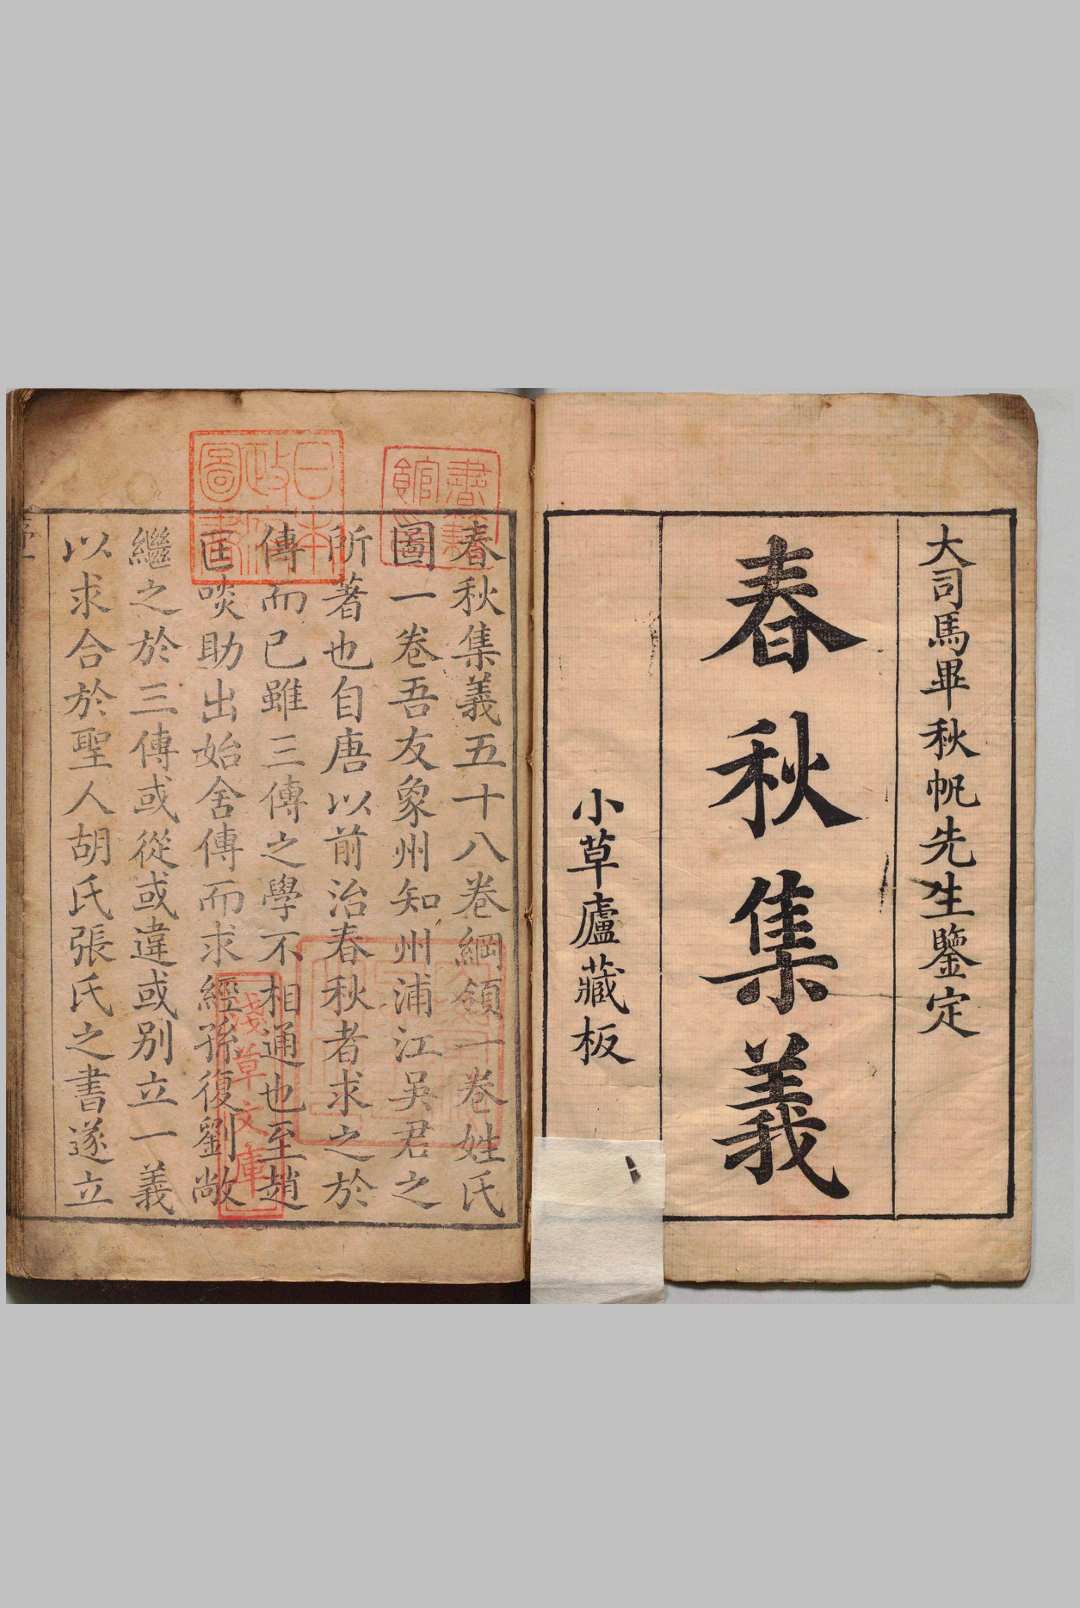 大司馬畢秋帆先生鑒定
春秋集義
小草廬藏板
春秋集義五十八卷綱領一卷姓氏
圖一卷吾友象州知州浦江吳君之
所著也自唐以前治春秋者求之於
傳而已雖三傳之學不相通也至趙
匡啖助出始舍傳而求經孫復劉敞
繼之於三傳或從或違或别立一義
以求合於聖人胡氏張氏之書遂立
日本
政府
圖書
淺草文庫